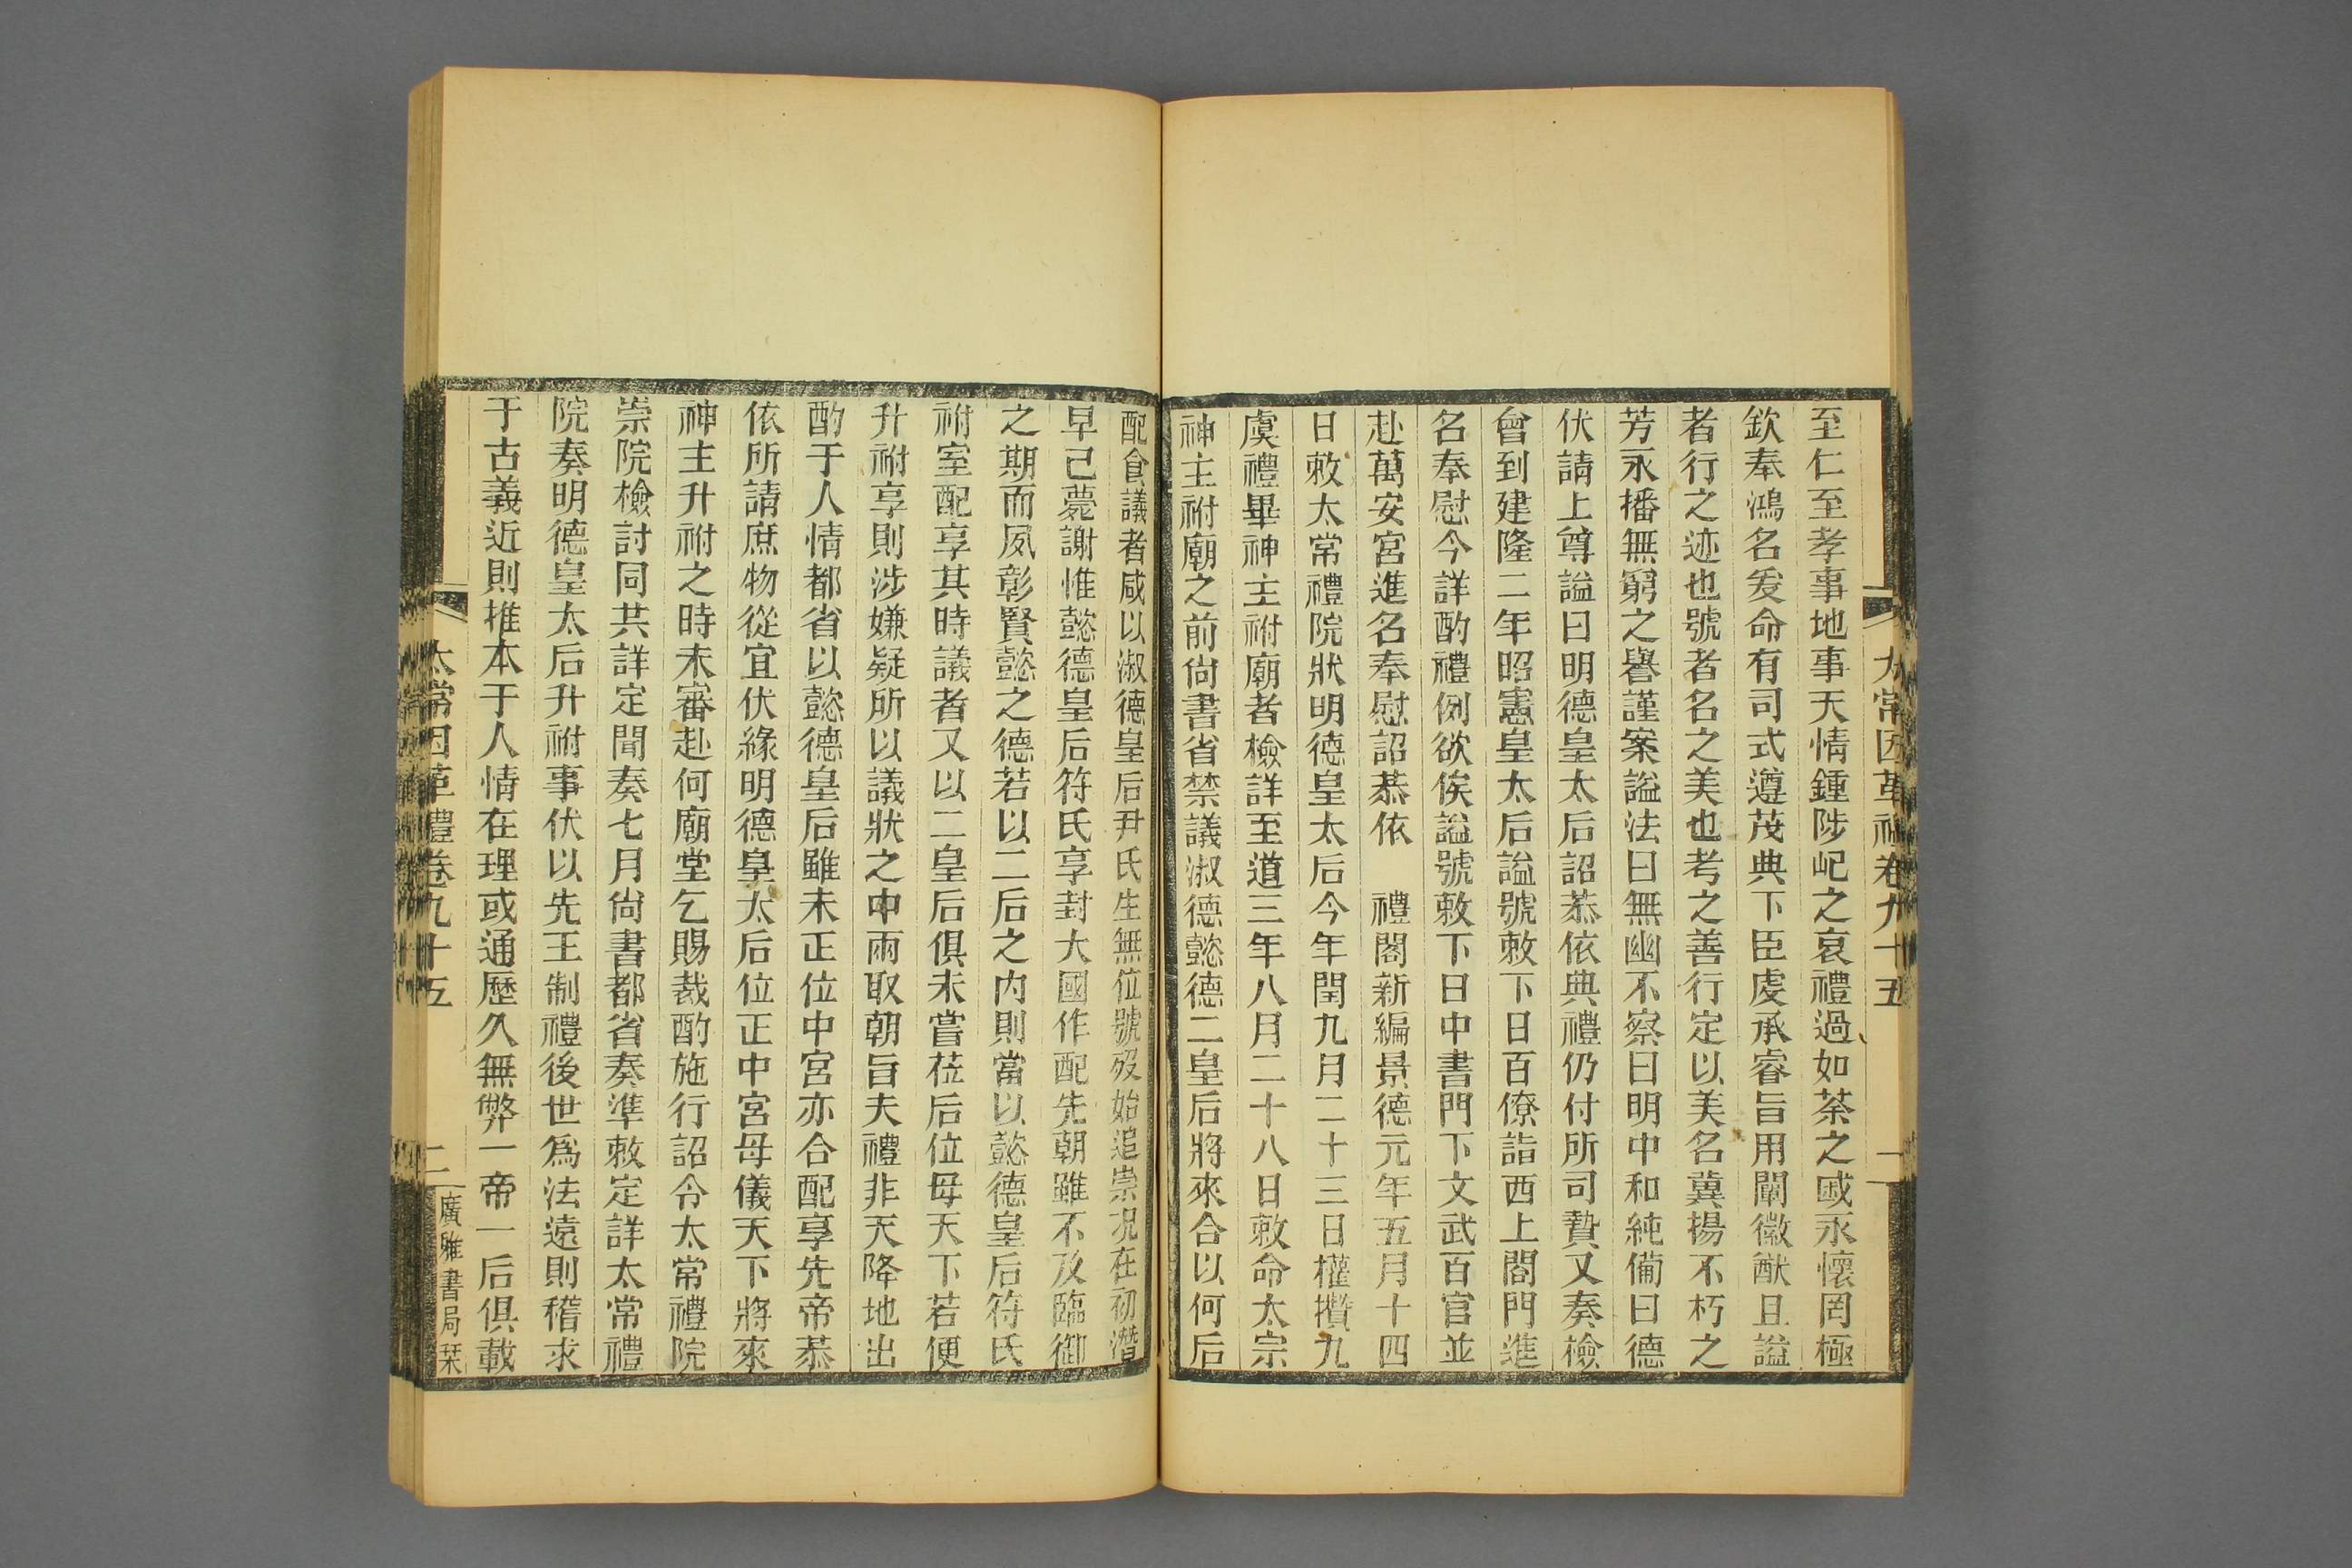 太常因革禮卷九十五 一
至仁至孝事地事天情鍾陟屺之哀禮過如荼之國永懷罔極
欽奉鴻名爰命有司式遵茂典下臣虔承睿旨用闡徽猷且謚
者行之迹也號者名之美也考之善行定以美名冀揚不朽之
芳永播無窮之譽謹案謚法曰無幽不察曰明中和純備曰德
伏請上尊謚曰明德皇太后詔恭依典禮仍付所司贊又奏檢
會到建隆二年昭憲皇太后謚號敕下日百僚詣西上閤門進
名奉慰今詳酌禮例欲俟謚號敕下日中書門下文武百官並
赴萬安宮進名奉慰詔恭依 禮閣新編景德元年五月十四
日敕太常禮院狀明德皇太后今年閏九月二十三日權攢九
虞禮畢神主祔廟者檢詳至道三年八月二十八日敕命太宗
神主祔廟之前尚書省禁議淑德懿德二皇后將來合以何后
配食議者咸以淑德皇后尹氏生無位號歿始追崇況在初潛
早已薨謝惟懿德皇后符氏享封大國作配先朝雖不及臨御
之期而夙彰賢懿之德若以二后之內則當以懿德皇后符氏
祔室配享其時議者又以二皇后俱未嘗莅后位母天下若便
升祔享則涉嫌疑所以議狀之中兩取朝旨夫禮非天降地出
酌于人情都省以懿德皇后雖未正位中宮亦合配享先帝恭
依所請庶物從宜伏緣明德皇太后位正中宮母儀天下將來
神主升祔之時未審赴何廟堂乞賜裁酌施行詔令太常禮院
崇院檢討同共詳定聞奏七月尚書都省奏準敕定詳太常禮
院奏明德皇太后升祔事伏以先王制禮後世爲法遠則稽求
于古義近則推本于人情在理或通歷久無弊一帝一后俱載
太常因革禮卷九十五 二 廣雅書局栞